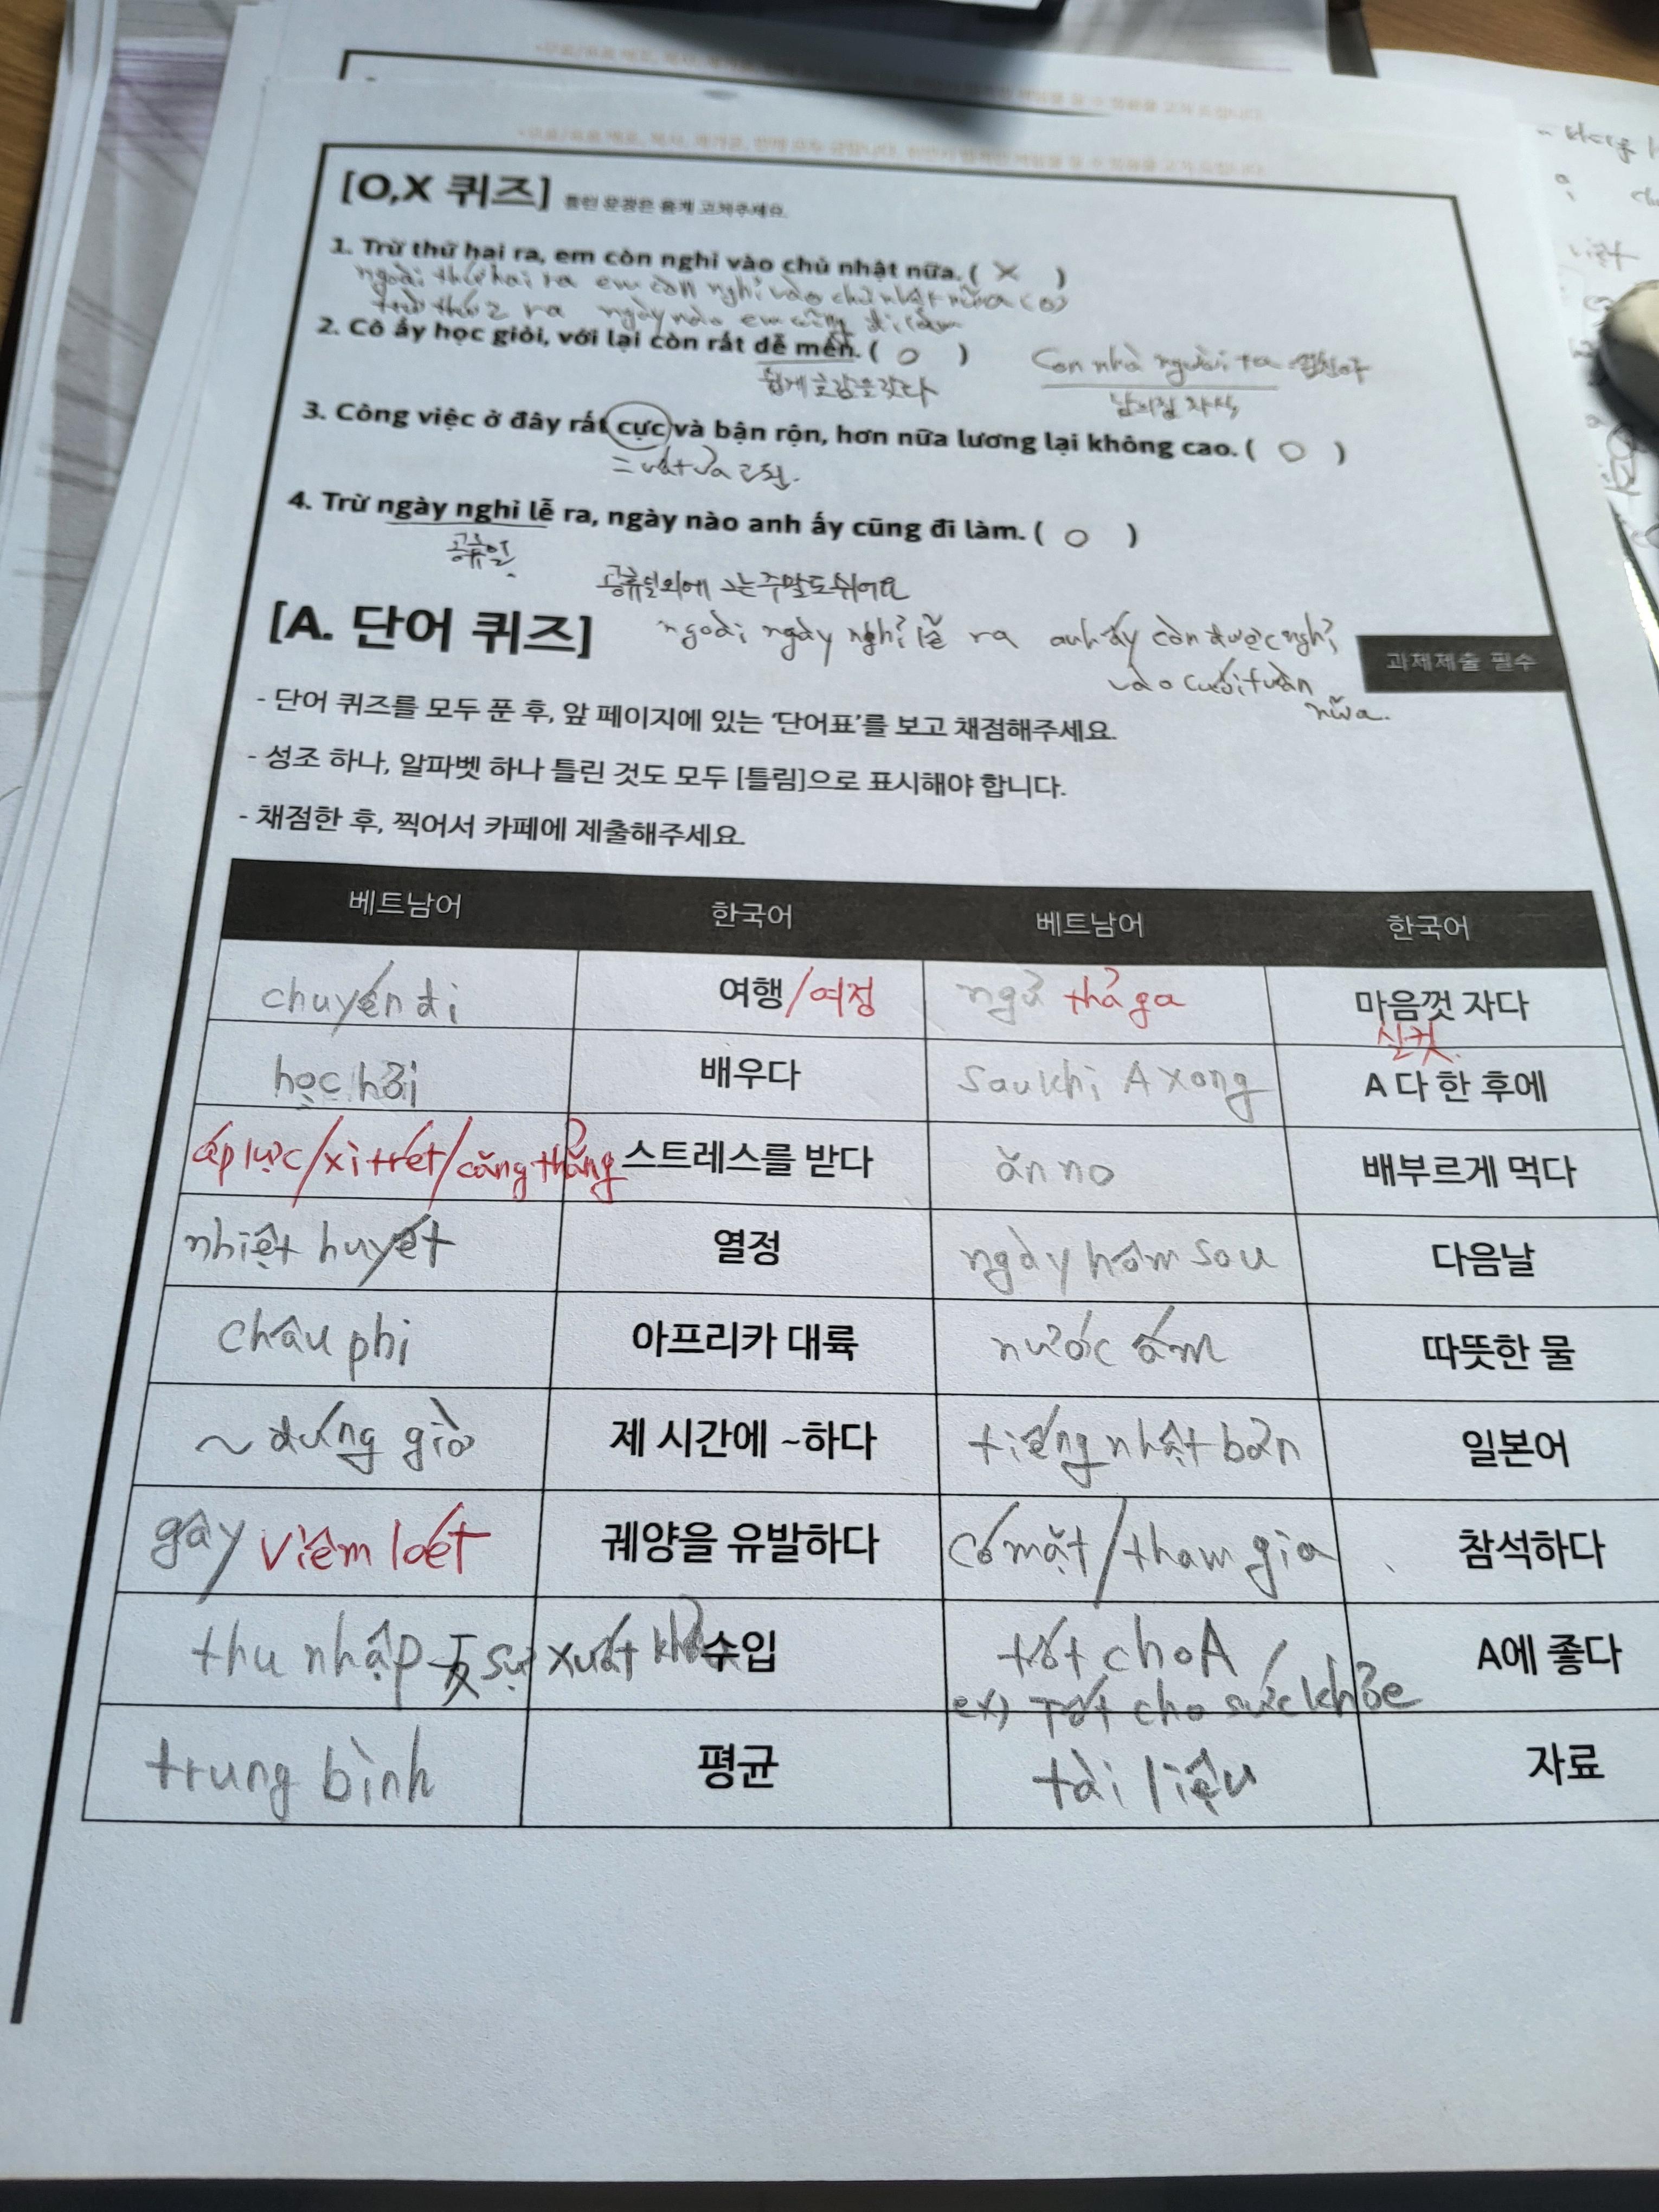 [O,X 퀴즈] 틀린 문장은 옳게 고쳐주세요.
1. Trừ thứ hai ra, em còn nghỉ vào chủ nhật nữa. ( X )
ngoài thứ hai ra em còn nghỉ vào chủ nhật nữa (o)
trừ thứ 2 ra ngày nào em cũng đi làm
2. Cô ấy học giỏi, với lại còn rất dễ mến. ( O )
쉽게 호감을 갖다
con nhà người ta 엄친아
남의집 자식
3. Công việc ở đây rất cực và bận rộn, hơn nữa lương lại không cao. ( O )
= vất vả 고된.
4. Trừ ngày nghỉ lễ ra, ngày nào anh ấy cũng đi làm. ( O )
공휴일.
공휴일외에 그는 주말도 쉬어요
[A. 단어 퀴즈]
ngoài ngày nghỉ lễ ra anh ấy còn được nghỉ
vào cuối tuần
nữa.
과제제출 필수
- 단어 퀴즈를 모두 푼 후, 앞 페이지에 있는 '단어표'를 보고 채점해주세요.
- 성조 하나, 알파벳 하나 틀린 것도 모두 [틀림]으로 표시해야 합니다.
- 채점한 후, 찍어서 카페에 제출해주세요.
베트남어 한국어 베트남어 한국어
chuyến đi 여행/여정 ngủ thả ga 마음껏 자다
실컷.
học hỏi 배우다 sau khi A xong A 다 한 후에
áp lực/xì trét/căng thẳng 스트레스를 받다 ăn no 배부르게 먹다
nhiệt huyết 열정 ngày hôm sau 다음날
châu phi 아프리카 대륙 nước ấm 따뜻한 물
~ đúng giờ 제 시간에 ~하다 tiếng nhật bản 일본어
gây viêm loét 궤양을 유발하다 có mặt/tham gia 참석하다
thu nhập sự xuất 수입 tốt cho A A에 좋다
ex) Tốt cho sức khỏe
trung bình 평균 tài liệu 자료